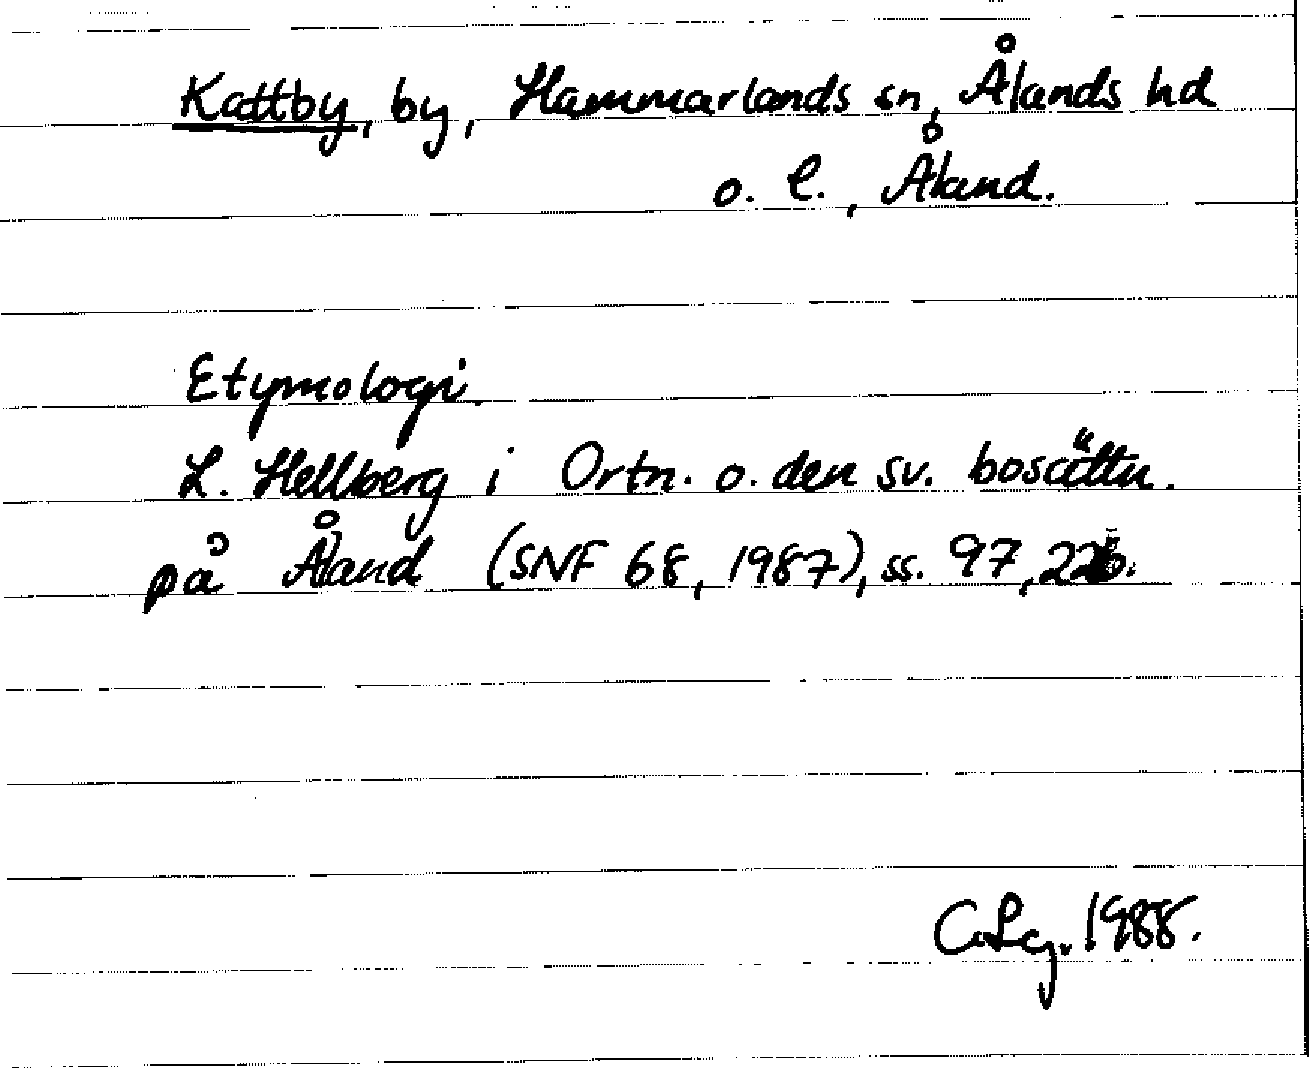 Kattby, by, Hammarlands sn, Ålands hd
o. l., Åland.
Etymologi.
L. Hellberg i Ortn. o. den sv. bosättn.
på Åland (SNF 68, 1987), ss. 97,
C.Lg. 1988.